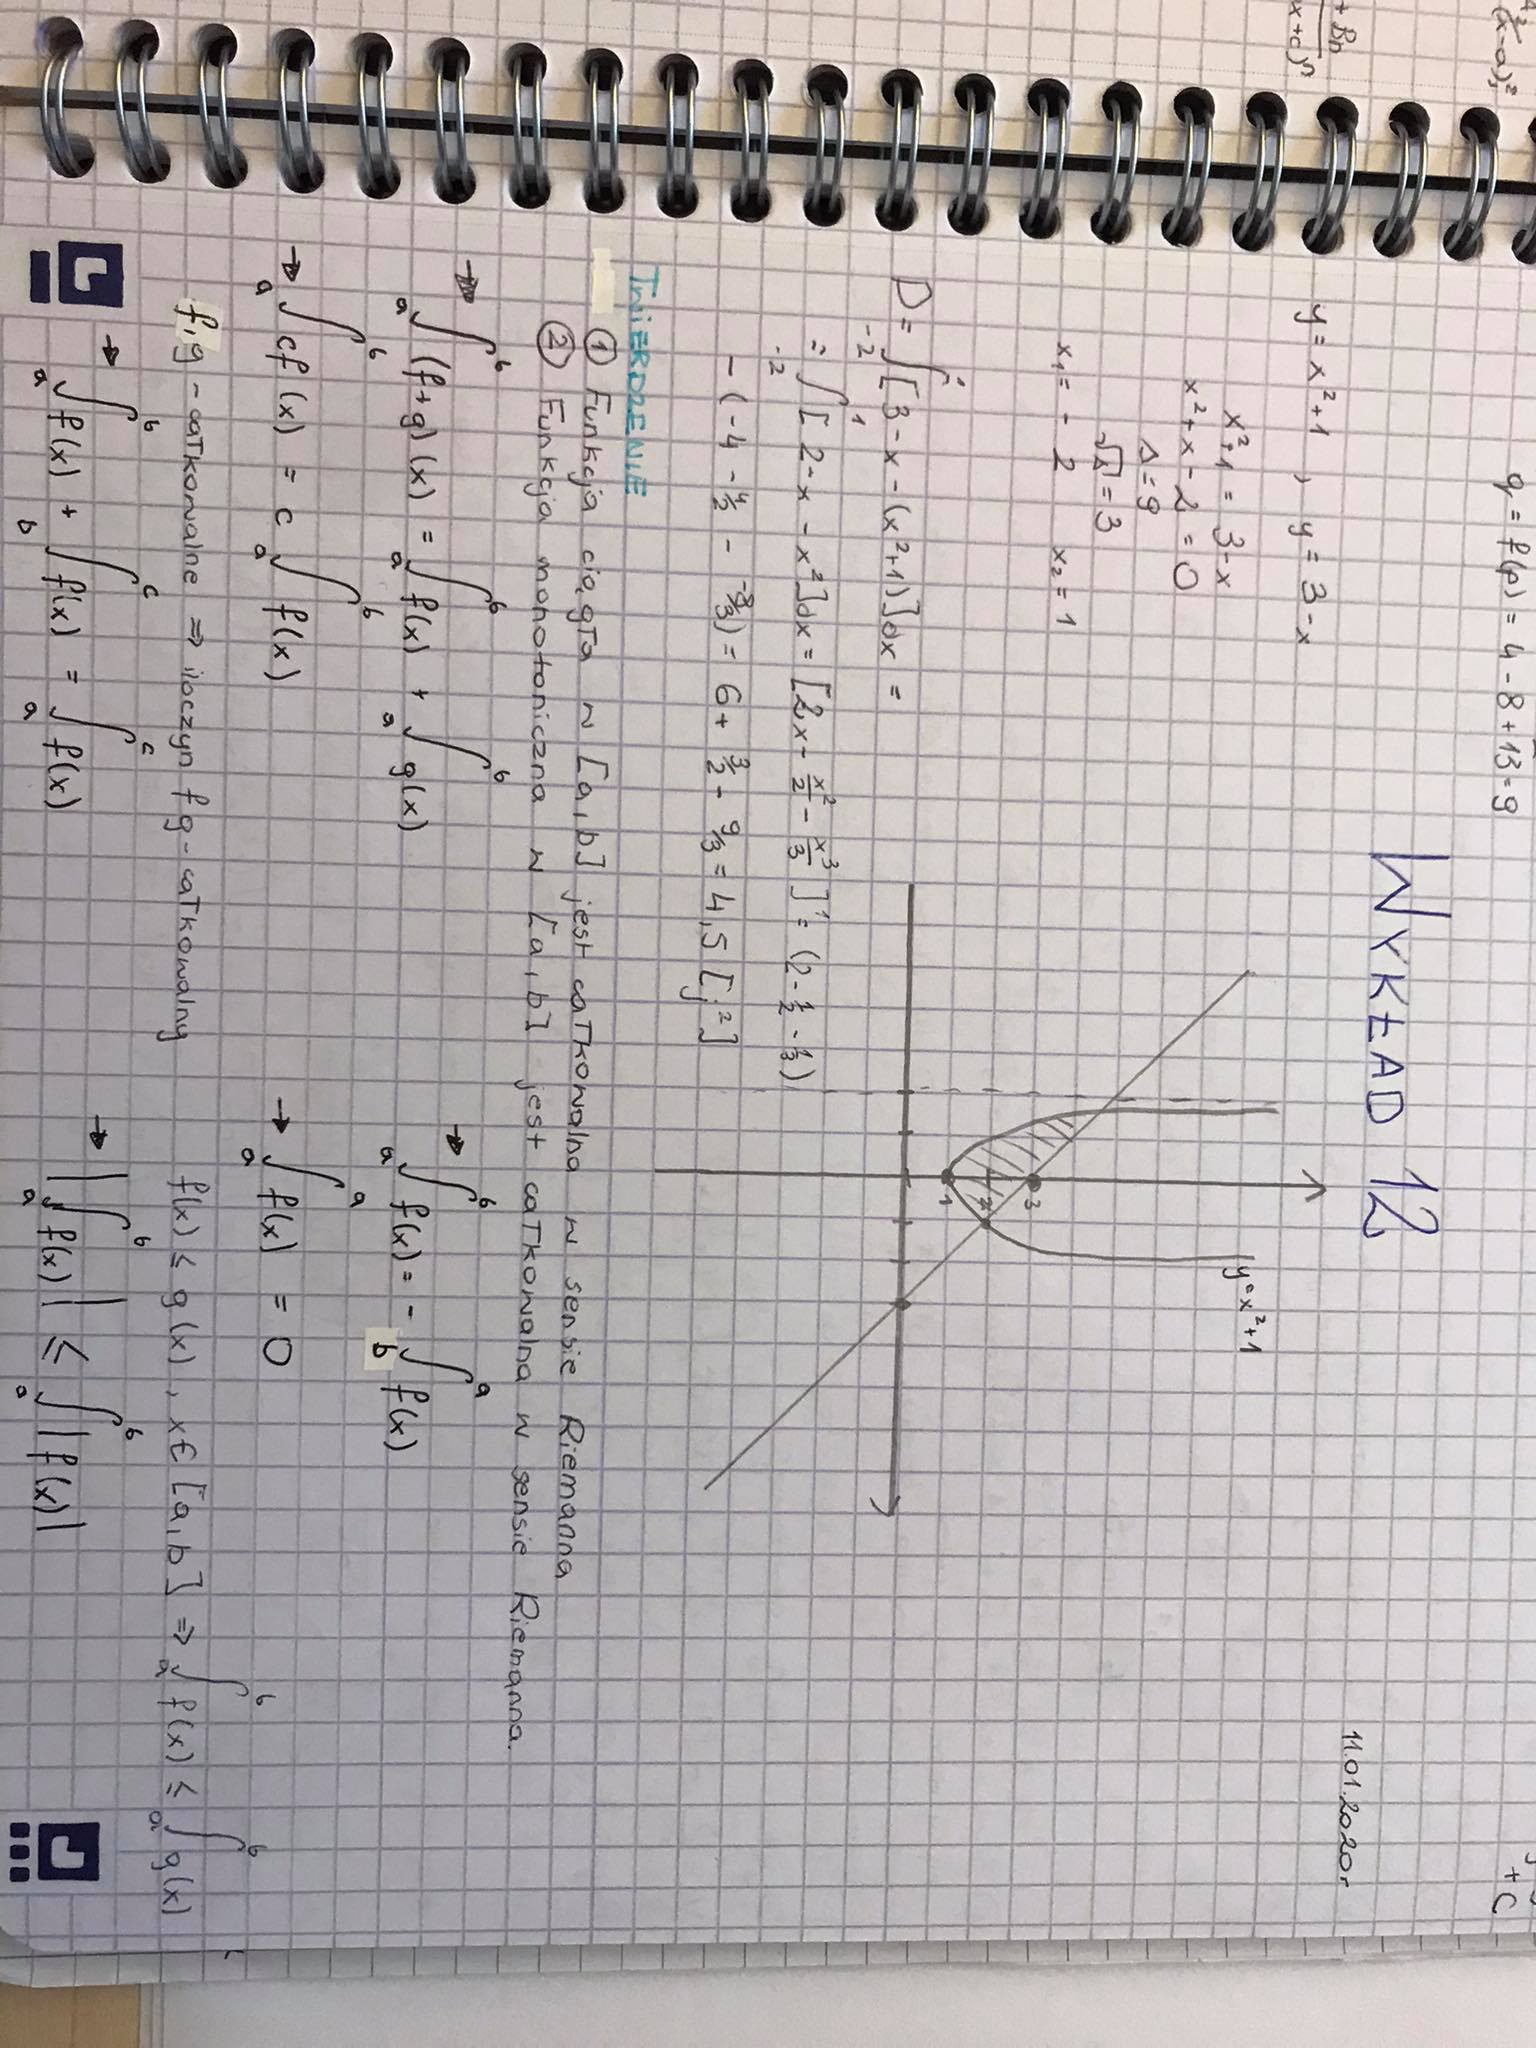 q = f(p) = 4 - 8 + 13 = 9
WYKŁAD 12
11.01.2020r
+ C
y = x²+1 , y = 3 - x
x²+1 = 3 - x
x² + x - 2 = 0
Δ = 9
√Δ = 3
x₁ = - 2 x₂ = 1
y = x²+1
3
2
1
D = ₋₂∫¹ [3 - x - (x²+1)]dx =
= ₋₂∫¹ [2 - x - x²]dx = [2x - x²/2 - x³/3]¹ = (2 - 1/2 - 1/3)
- (-4 - 4/2 - -8/3) = 6 + 3/2 - 9/3 = 4,5 [j²]
TWIERDZENIE
① Funkcja ciągła w [a,b] jest całkowalna w sensie Riemanna
② Funkcja monotoniczna w [a,b] jest całkowalna w sensie Riemanna.
→ ₐ∫ᵇ (f+g)(x) = ₐ∫ᵇ f(x) + ₐ∫ᵇ g(x)
→ ₐ∫ᵇ f(x) = - b∫ᵃ f(x)
→ ₐ∫ᵇ cf(x) = c ₐ∫ᵇ f(x)
→ ₐ∫ᵃ f(x) = 0
f,g - całkowalne ⇒ iloczyn fg - całkowalny
f(x) ≤ g(x), x∈[a,b] ⇒ ₐ∫ᵇ f(x) ≤ ₐ∫ᵇ g(x)
→ ₐ∫ᵇ f(x) + b∫ᶜ f(x) = ₐ∫ᶜ f(x)
→ |ₐ∫ᵇ f(x)| ≤ ₐ∫ᵇ |f(x)|